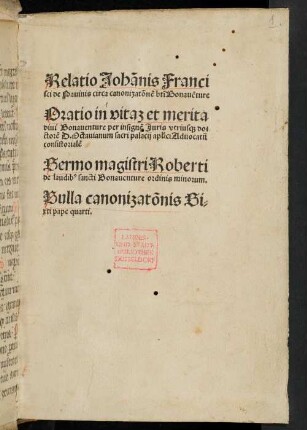 Relatio Johānis Franci
sci de Pauinis circa canonizatōnē bti Bonauēture
Oratio in vitaȝ et merita
diui Bonauenture per insignē Juris vtriusqȝ do
ctorē D. Octauianum sacri palacij aplici Aduocatū
consistorialē
Sermo magistri Roberti
de laudibꝰ sancti Bonauenture ordinis minorum.
Bulla canonizatōnis Si
xti pape quarti.
LANDES-
UND STADT-
BIBLIOTHEK
DÜSSELDORF
1